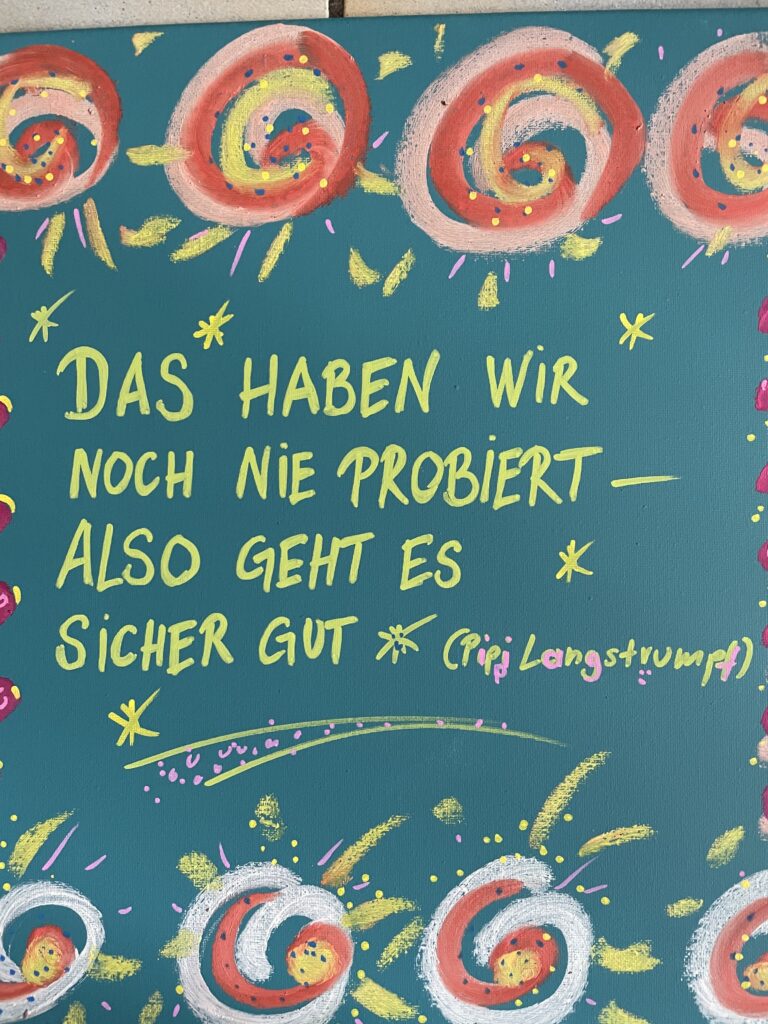 DAS HABEN WIR
NOCH NIE PROBIERT —
ALSO GEHT ES
SICHER GUT (Pipi Langstrumpf)